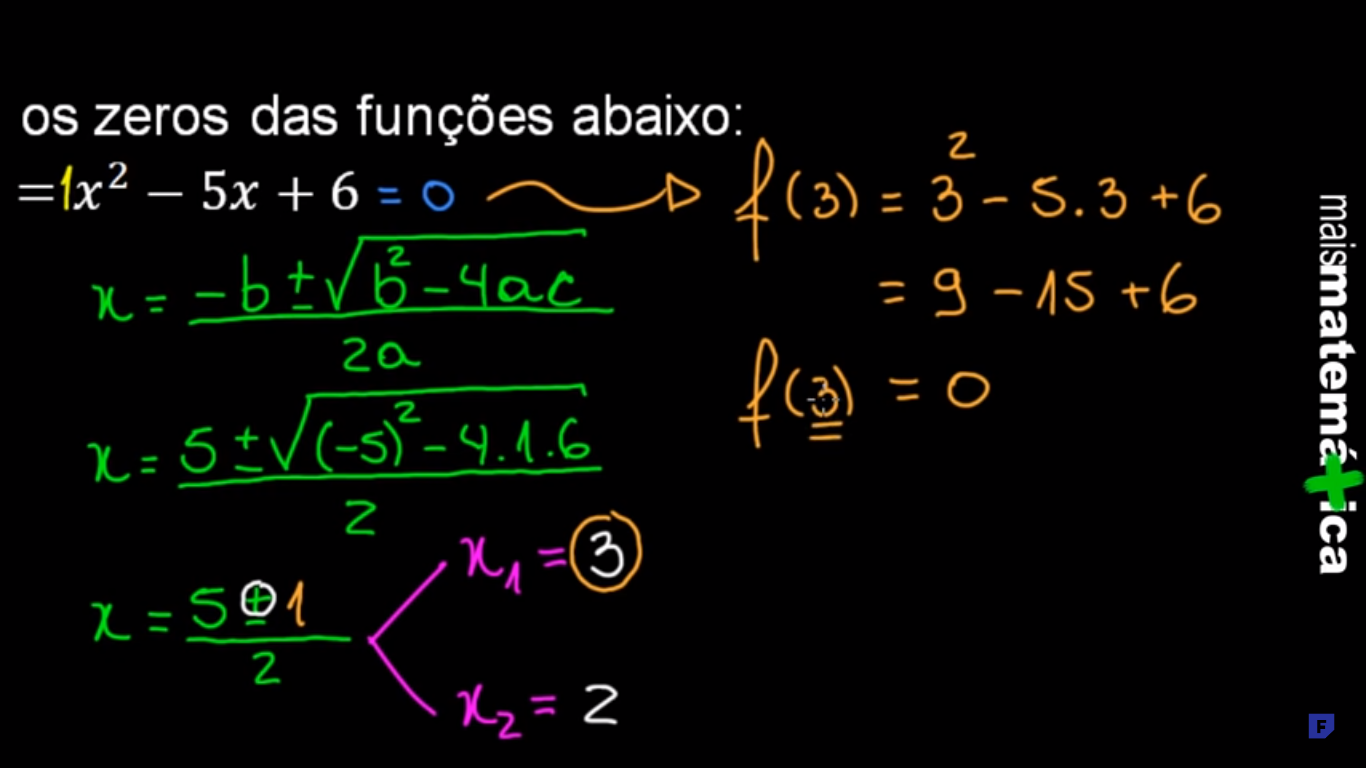 os zeros das funções abaixo:
=1x² − 5x + 6 = 0
x = -b ± √b² - 4ac
2a
x = 5 ± √(-5)² - 4.1.6
2
x = 5 ± 1
2
x₁ = 3
x₂ = 2
f(3) = 3² - 5.3 + 6
= 9 - 15 + 6
f(3) = 0
maismatemática
F